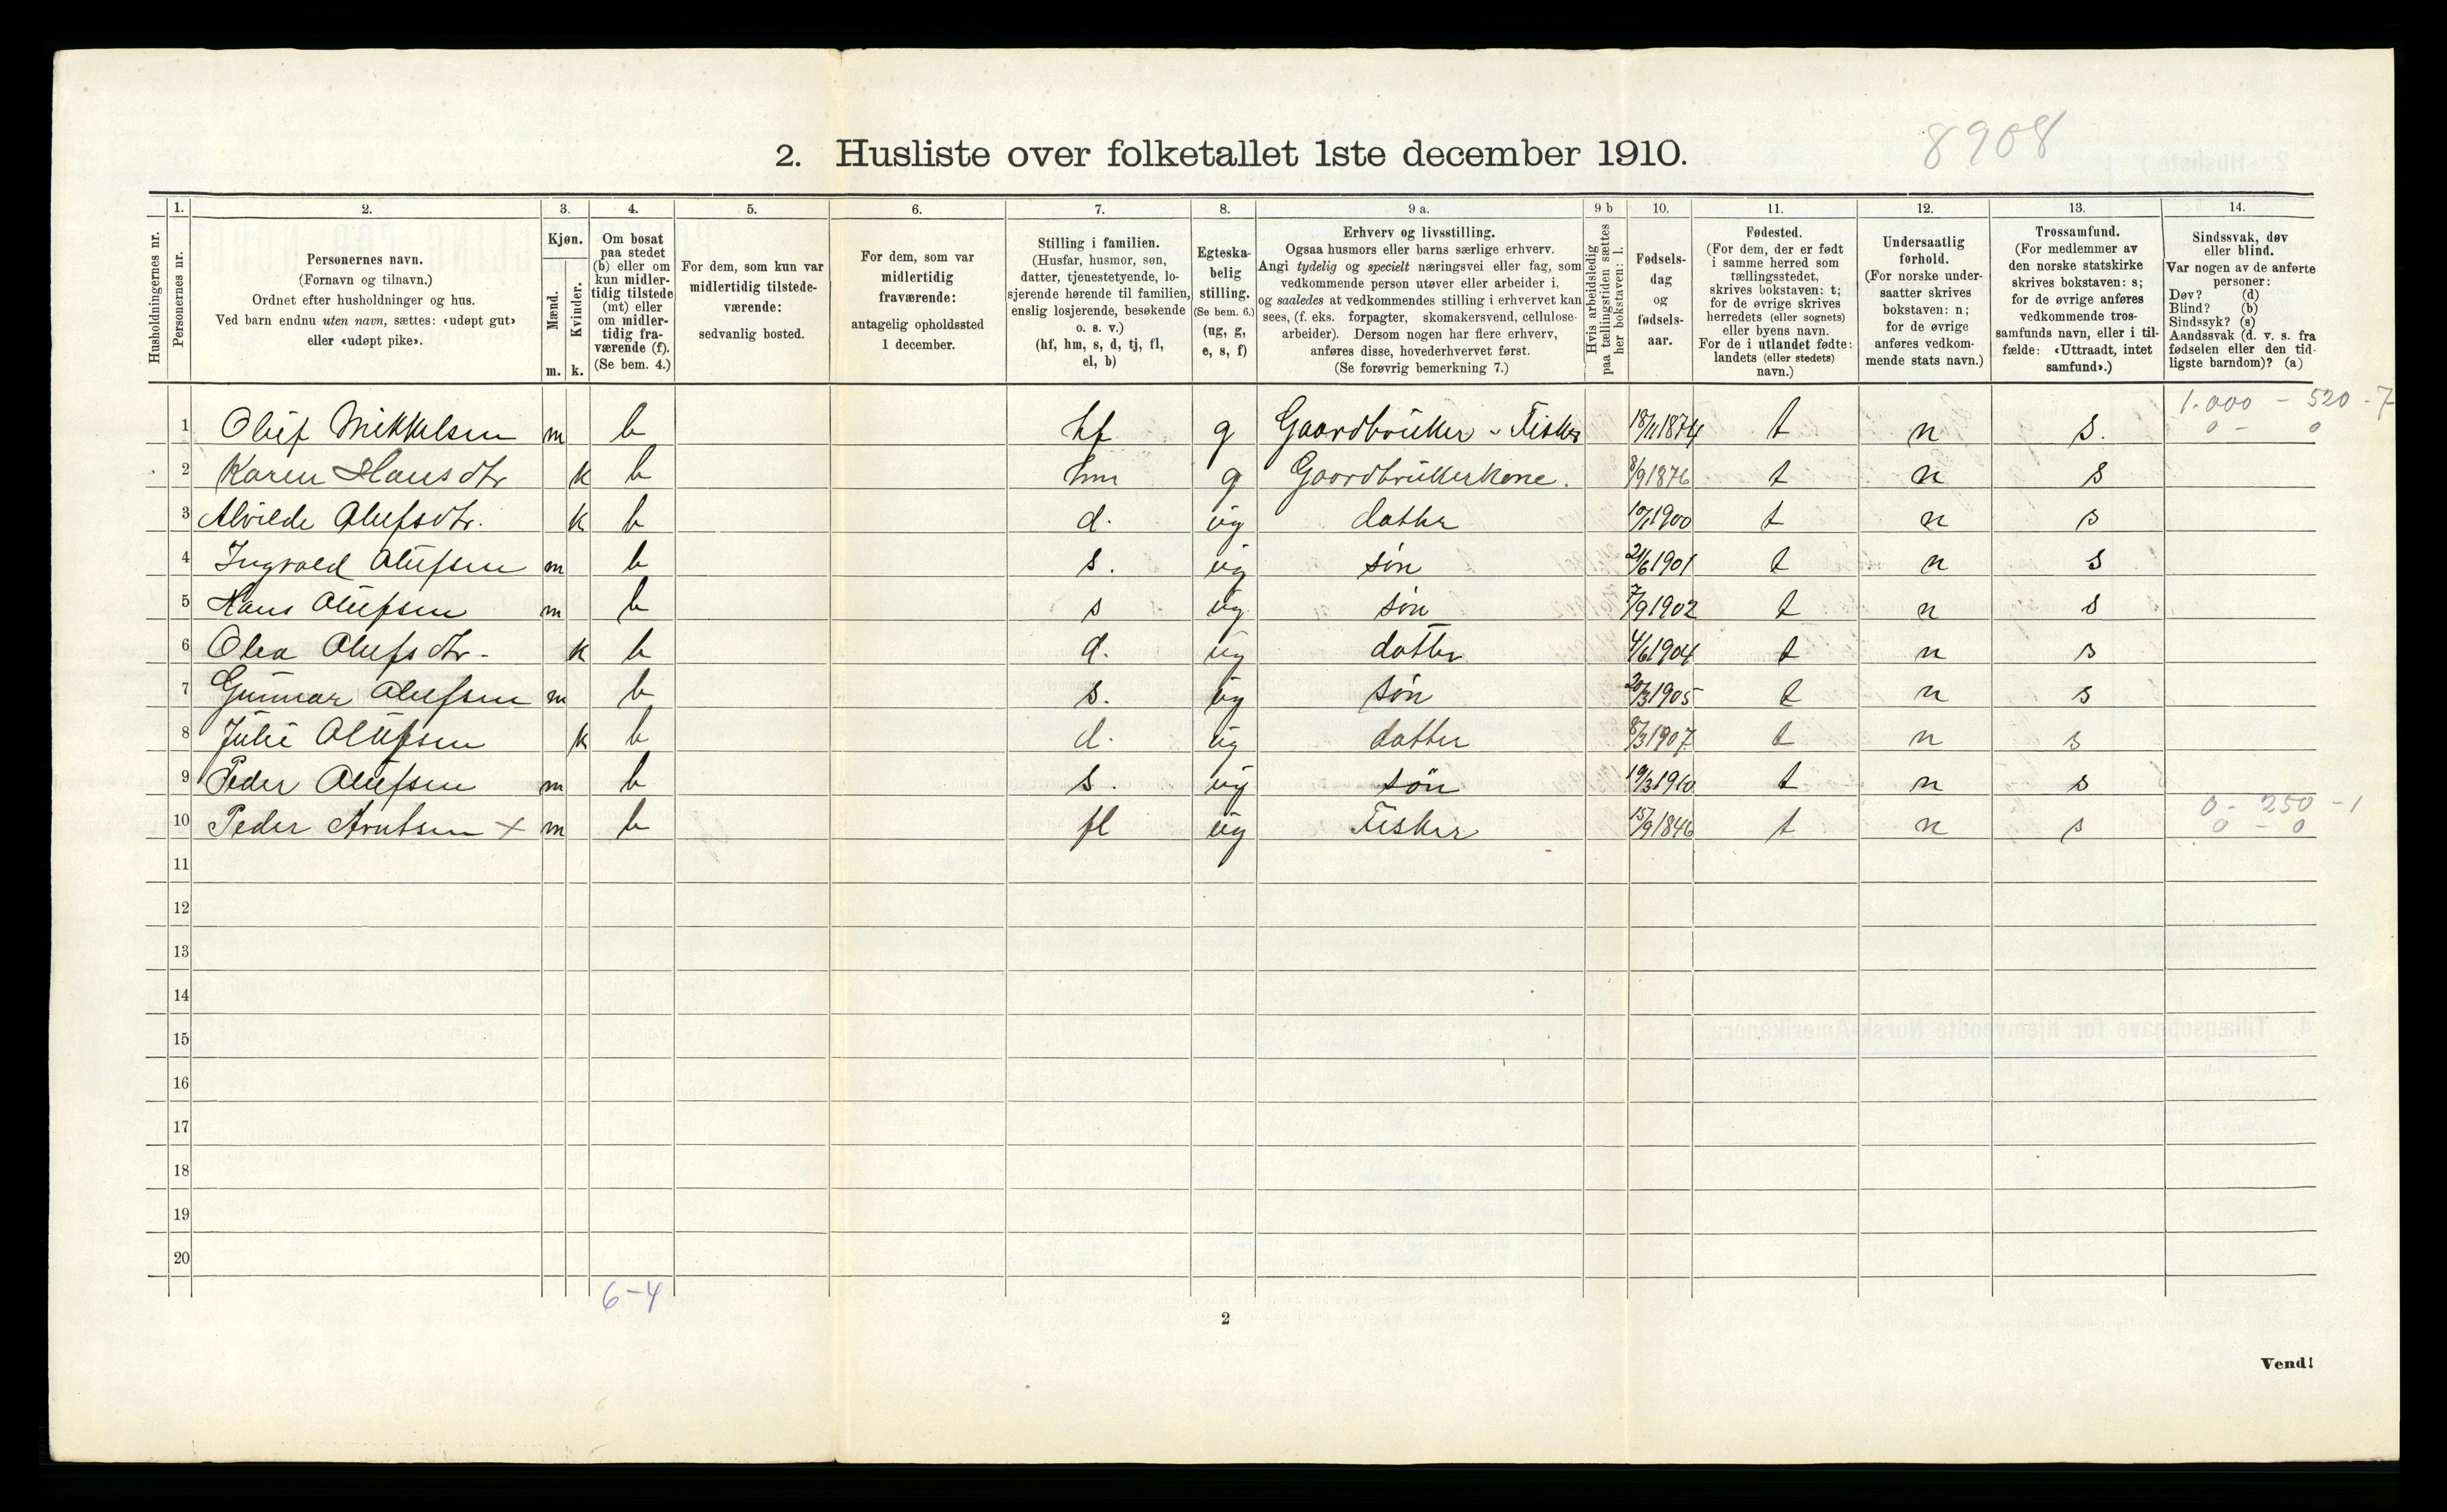 8908
2. Husliste over folketallet 1ste december 1910.
Husholdningernes nr.
1. Personernes nr.
2. Personernes navn. (Fornavn og tilnavn.) Ordnet efter husholdninger og hus. Ved barn endnu uten navn, sættes: «udøpt gut» eller «udøpt pike».
3. Kjøn. Mænd. m. Kvinder. k.
4. Om bosat paa stedet (b) eller om kun midler-tidig tilstede (mt) eller om midler-tidig fra-værende (f). (Se bem. 4.)
5. For dem, som kun var midlertidig tilstede-værende: sedvanlig bosted.
6. For dem, som var midlertidig fraværende: antagelig opholdssted 1 december.
7. Stilling i familien. (Husfar, husmor, søn, datter, tjenestetyende, lo-sjerende hørende til familien, enslig losjerende, besøkende o. s. v.) (hf, hm, s, d, tj, fl, el, b)
8. Egteska-belig stilling. (Se bem. 6.) (ug, g, e, s, f)
9 a. Erhverv og livsstilling. Ogsaa husmors eller barns særlige erhverv. Angi tydelig og specielt næringsvei eller fag, som vedkommende person utøver eller arbeider i, og saaledes at vedkommendes stilling i erhvervet kan sees, (f. eks. forpagter, skomakersvend, cellulose-arbeider). Dersom nogen har flere erhverv, anføres disse, hovederhvervet først. (Se forøvrig bemerkning 7.)
9 b Hvis arbeidsledig paa tællingstiden sættes her bokstaven: l.
10. Fødsels-dag og fødsels-aar.
11. Fødested. (For dem, der er født i samme herred som tællingsstedet, skrives bokstaven: t; for de øvrige skrives herredets (eller sognets) eller byens navn. For de i utlandet fødte: landets (eller stedets) navn.)
12. Undersaatlig forhold. (For norske under-saatter skrives bokstaven: n; for de øvrige anføres vedkom-mende stats navn.)
13. Trossamfund. (For medlemmer av den norske statskirke skrives bokstaven: s; for de øvrige anføres vedkommende tros-samfunds navn, eller i til-fælde: «Uttraadt, intet samfund».)
14. Sindssvak, døv eller blind. Var nogen av de anførte personer: Døv? (d) Blind? (b) Sindssyk? (s) Aandssvak (d. v. s. fra fødselen eller den tid-ligste barndom)? (a)
1.000 - 520 - 7
1 Oluf Mikkelsen m b hf g Gaardbruker - Fisker 18/11 1874 t n s. 0 - 0
2 Karen Hansdtr k b hm g Gaardbrukerkone. 8/9 1876 t n s
3 Alvilde Olufsdtr. k b d. ug datter 10/1 1900 t n s
4 Ingvald Olufsen m b s. ug søn 21/6 1901 t n s
5 Hans Olufsen m b s ug søn 7/9 1902 t n s
6 Olea Olufsdtr. k b d. ug datter 4/6 1904 t n s
7 Gunnar Olufsen m b s. ug søn 20/3 1905 t n s
8 Julie Olufsen k b d. ug datter 8/3 1907 t n s
9 Peder Olufsen m b s. ug søn 19/3 1910 t n s
0 - 250 - 1
10 Peder Arntsen x m b fl ug Fisker 15/9 1846 t n s 0 - 0
11
12
13
14
15
16
17
18
19
20
6-4
2
Vend!